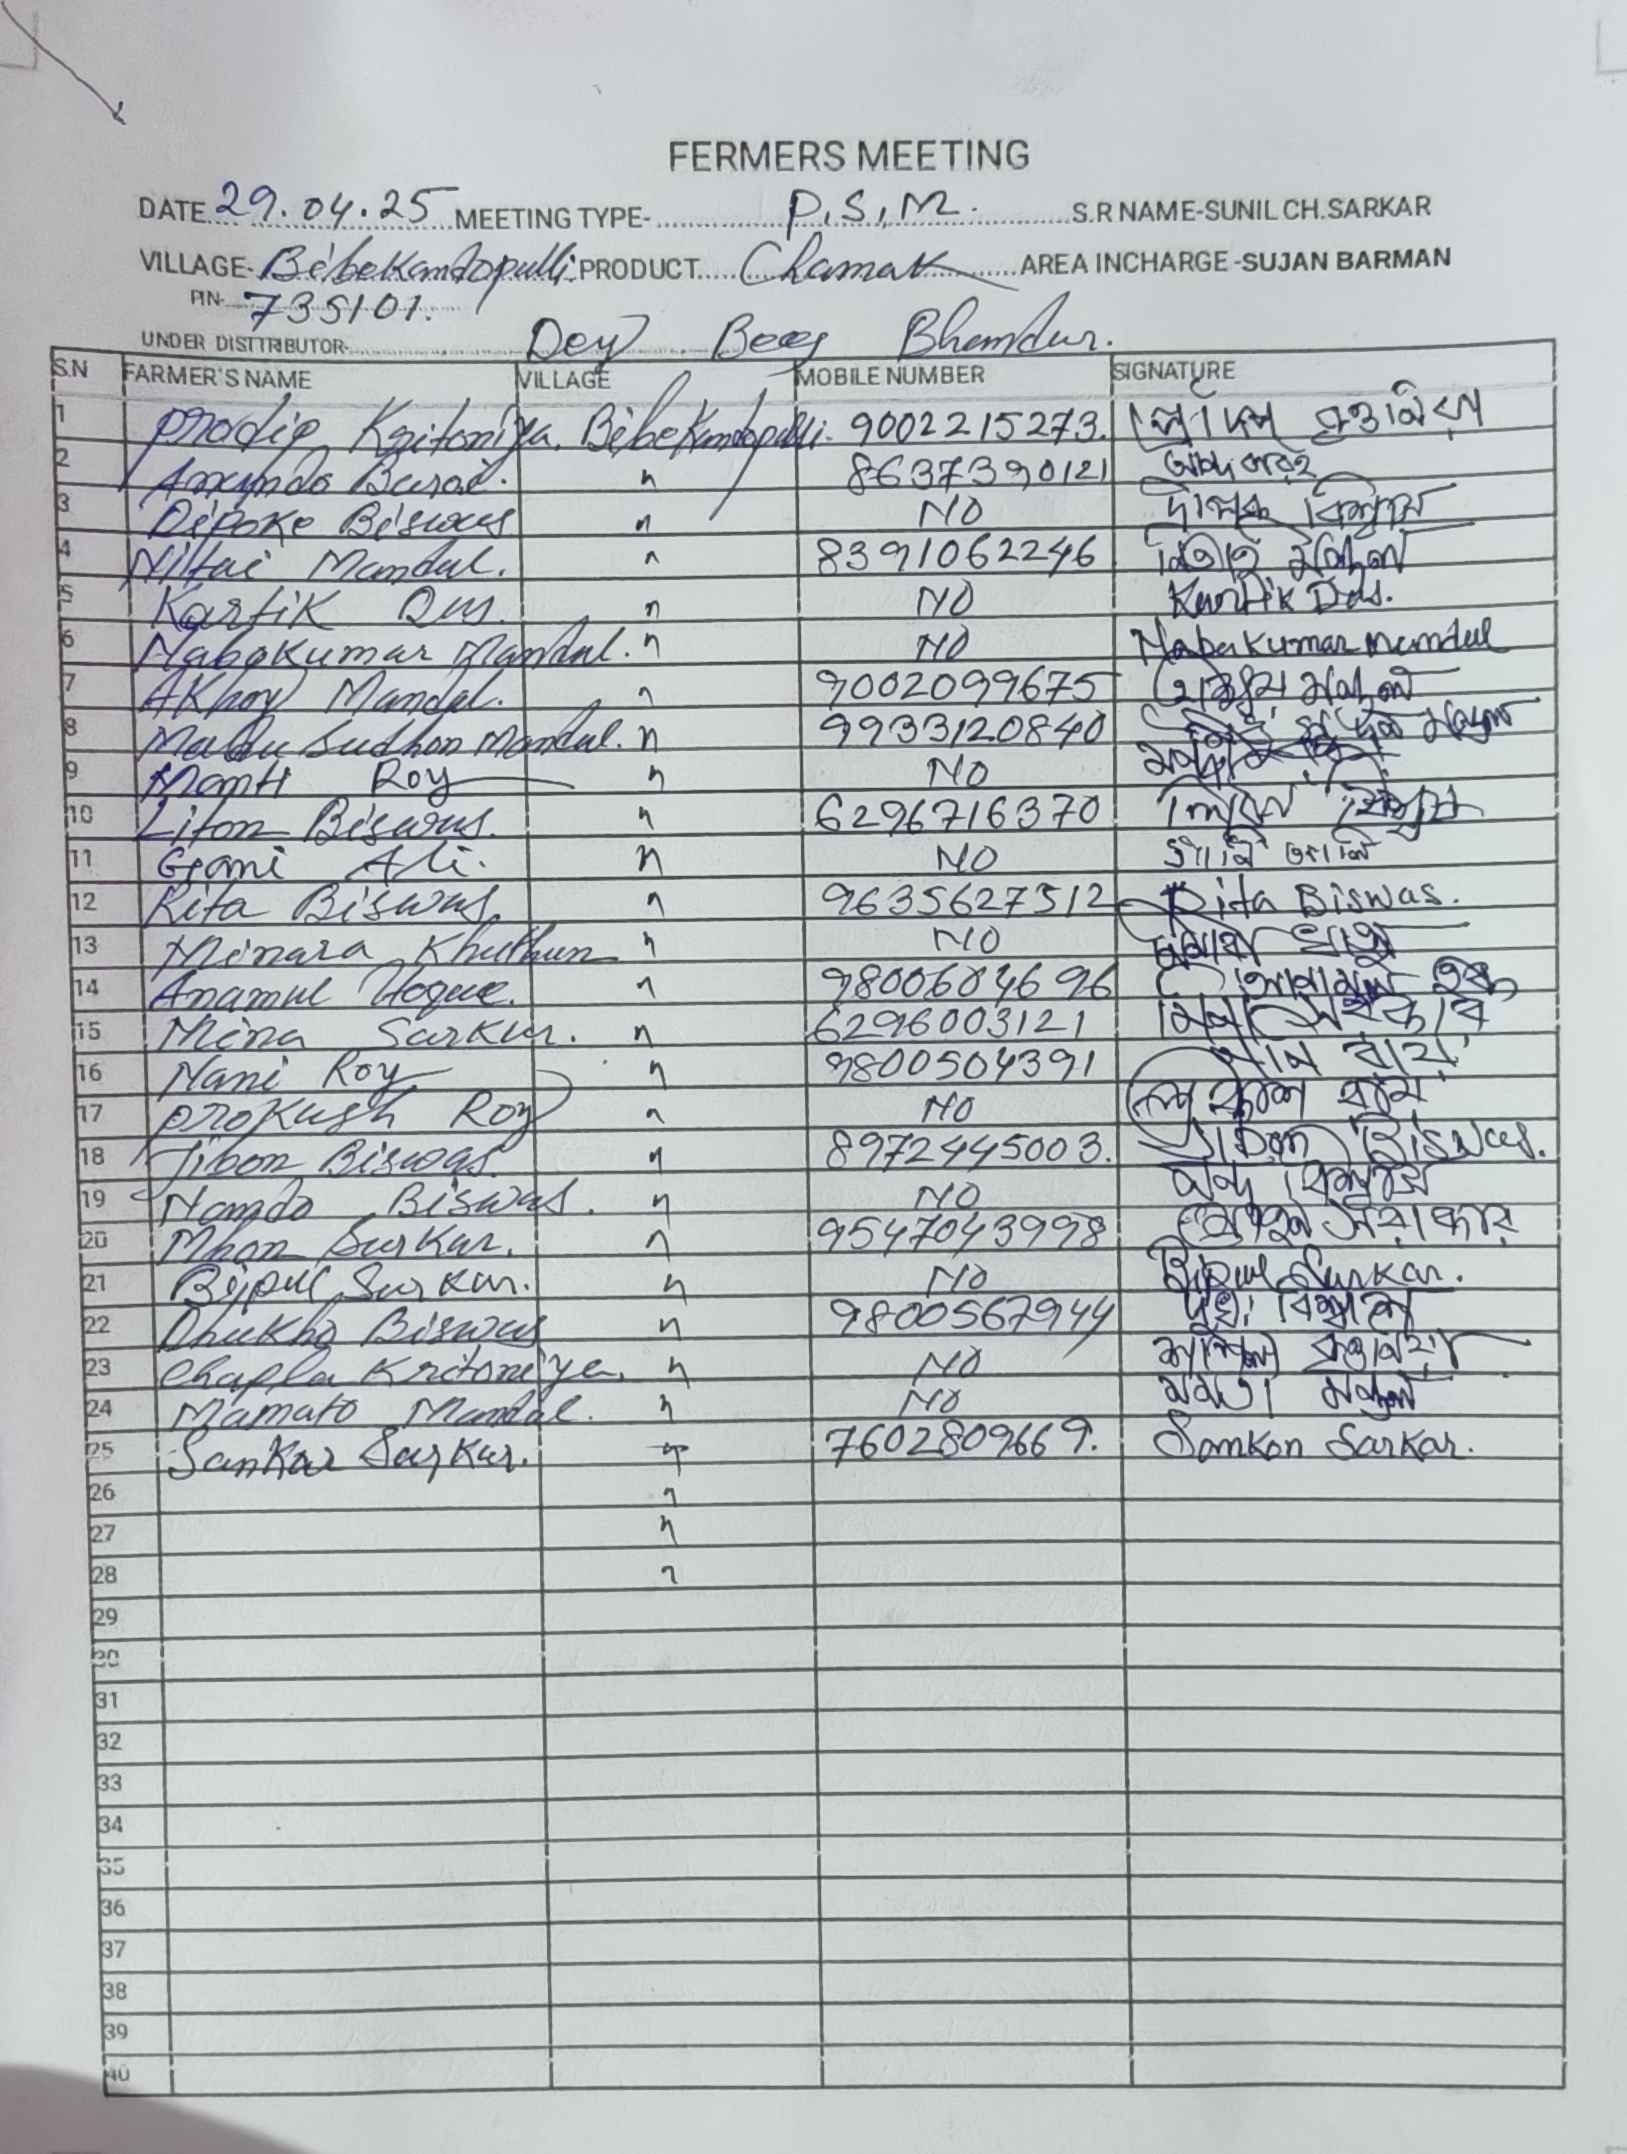 FERMERS MEETING
DATE 29.04.25 MEETING TYPE- P.S.M. S.R NAME-SUNIL CH.SARKAR
VILLAGE- Bebekandopulli PRODUCT Chamak AREA INCHARGE -SUJAN BARMAN
PIN- 735101.
UNDER DISTTRIBUTOR- Dey Beej Bhandur.
S.N FARMER'S NAME VILLAGE MOBILE NUMBER SIGNATURE
1 Prodip Kritoniya. Bebekandopulli. 9002215273.
2 Barai. " 8637390121
3 Dipoke Biswas " NO দীপক বিশ্বাস
4 Nittai Mandal. " 8391062246 নিতাই মন্ডল
5 Kartik Das. " NO Kartik Das.
6 Nabakumar Mandal. " NO Nabakumar Mandal
7 AKhoy Mandal. " 9002099675 মন্ডল
8 Madhu Sudhon Mandal. " 9933120840 মন্ডল
9 Roy " NO
10 Liton Biswas. " 6296716370 বিশ্বাস
11 Goni Ali. " NO গনি আলি
12 Rita Biswas. " 9635627512 Rita Biswas.
13 Minara Khathun " NO
14 Anamul Hoque. " 9800604696 হক
15 Mina Sarkar. " 6296003121 মিনা সরকার
16 Nani Roy " 9800504391 ননি রায়
17 Prokash Roy " NO প্রকাশ রায়
18 Jibon Biswas " 8972445003. Jibon Biswas.
19 Nando Biswas. " NO নন্দ বিশ্বাস
20 Mhon Sarkar. " 9547043998 সরকার
21 Bipul Sarkar. " NO Bipul Sarkar.
22 Dhukho Biswas " 9800567944 বিশ্বাস
23 Chapla Kritoniya. " NO
24 Mamato Mandal. " NO মমতা মন্ডল
25 Sankar Sarkar. " 7602809669. Sankar Sarkar.
26 "
27 "
28 "
29
30
31
32
33
34
35
36
37
38
39
40